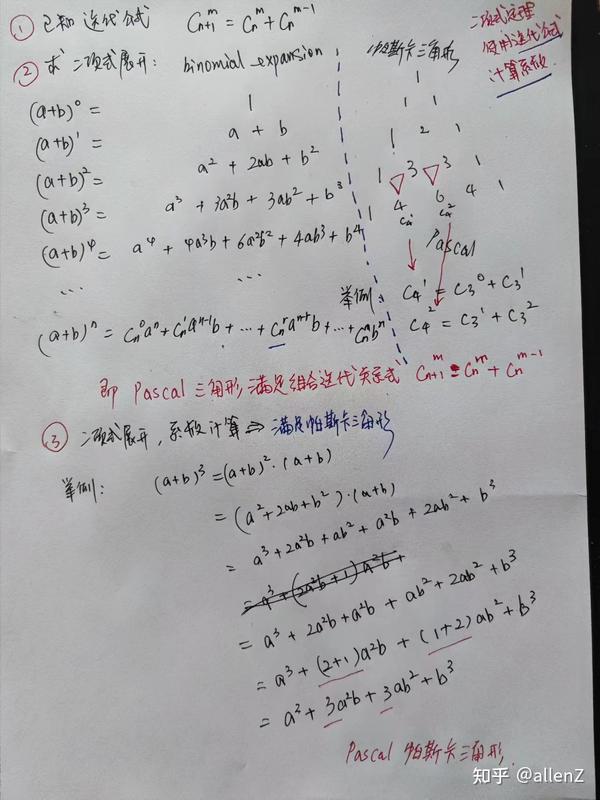 ① 已知 迭代公式 Cₙ₊₁ᵐ = Cₙᵐ + Cₙᵐ⁻¹
二项式定理
使用迭代公式
计算系数.
② 求 二项式展开: binomial expansion
帕斯卡三角形
(a+b)⁰ = 1
(a+b)¹ = a + b
(a+b)² = a² + 2ab + b²
(a+b)³ = a³ + 3a²b + 3ab² + b³
(a+b)⁴ = a⁴ + 4a³b + 6a²b² + 4ab³ + b⁴
... ...
(a+b)ⁿ = Cₙ⁰aⁿ + Cₙ¹aⁿ⁻¹b + ... + Cₙʳaⁿ⁻ʳb + ... + Cₙⁿbⁿ
1
1 1
1 2 1
1 3 3 1
1 4 6 4 1
C₄¹ C₄²
Pascal
举例: C₄¹ = C₃⁰ + C₃¹
C₄² = C₃¹ + C₃²
即 Pascal 三角形 满足组合迭代关系式 Cₙ₊₁ᵐ = Cₙᵐ + Cₙᵐ⁻¹
③ 二项式展开, 系数计算 ⇒ 满足帕斯卡三角形
举例: (a+b)³ = (a+b)²·(a+b)
= (a²+2ab+b²)·(a+b)
= a³+2a²b+ab² + a²b + 2ab² + b³
= a³ + (2a²b+1)a²b +
= a³ + 2a²b + a²b + ab² + 2ab² + b³
= a³ + (2+1)a²b + (1+2)ab² + b³
= a³ + 3a²b + 3ab² + b³
Pascal 帕斯卡三角形.
知乎 @allenZ